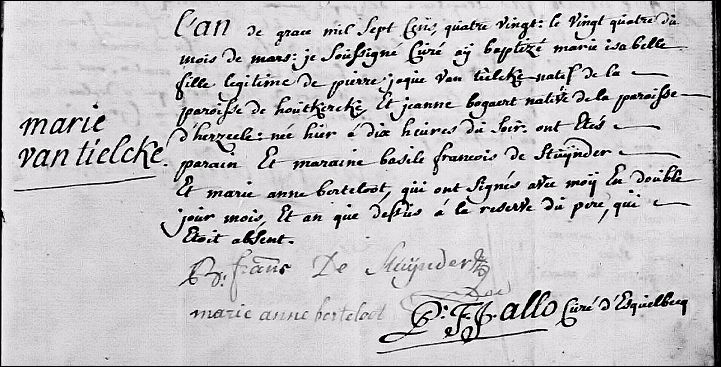 L'an de grace mil Sept Cens quatre vingt: le vingt quatre du
mois de mars: je Soussigné Curé aÿ baptizé marie isabelle
fille legitime de pierre jaque van tielcke natif de la
paroisse de houtkercke Et jeanne bogaert native de la paroisse
d'herzeele: né hier á dix heures du Soir. ont Etés
marie
van tielcke
parain Et maraine basile francois de Stuÿnder
Et marie anne berteloot, qui ont Signés avec moÿ En double
jour mois, Et an que dessus á la reserve du pere, qui
Etoit absent.
B: frans De Stuÿnder
marie anne berteloot
P: F J allo Curé d'Esquelbecq